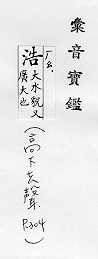 彙音寶鑑
浩
大水貌又
廣大也
(高下去聲
P.304)